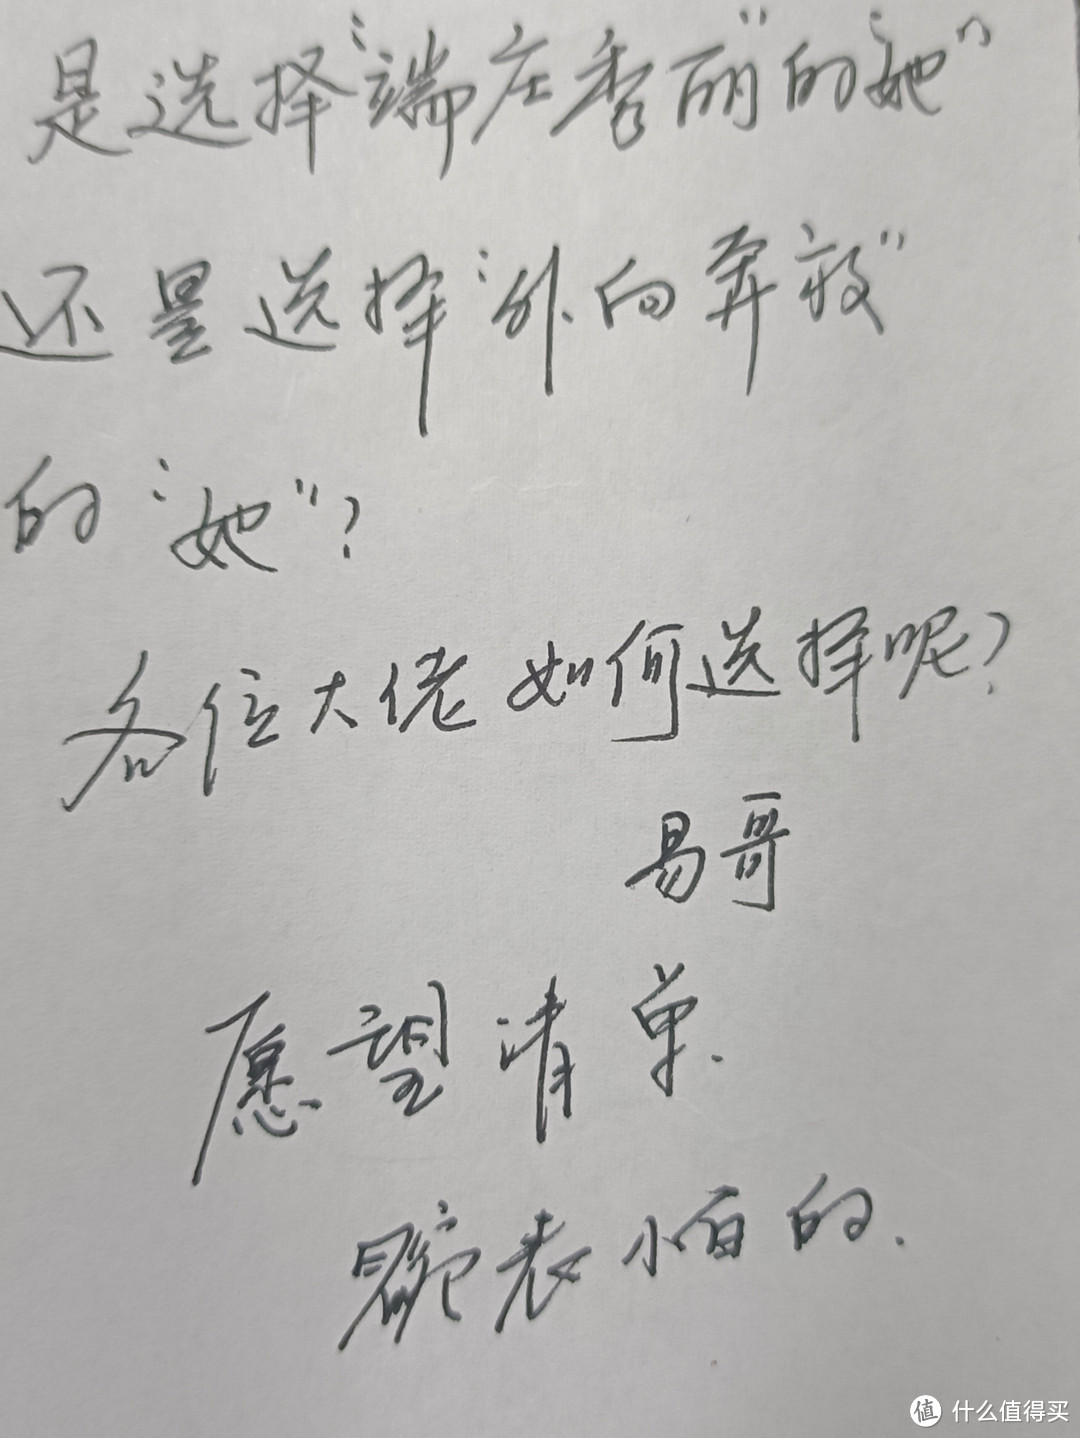 是选择“端庄秀丽”的“她”
还是选择“外向奔放”
的“她”？
各位大佬如何选择呢？
易哥
愿望清单.
腕表小白的.
值 什么值得买